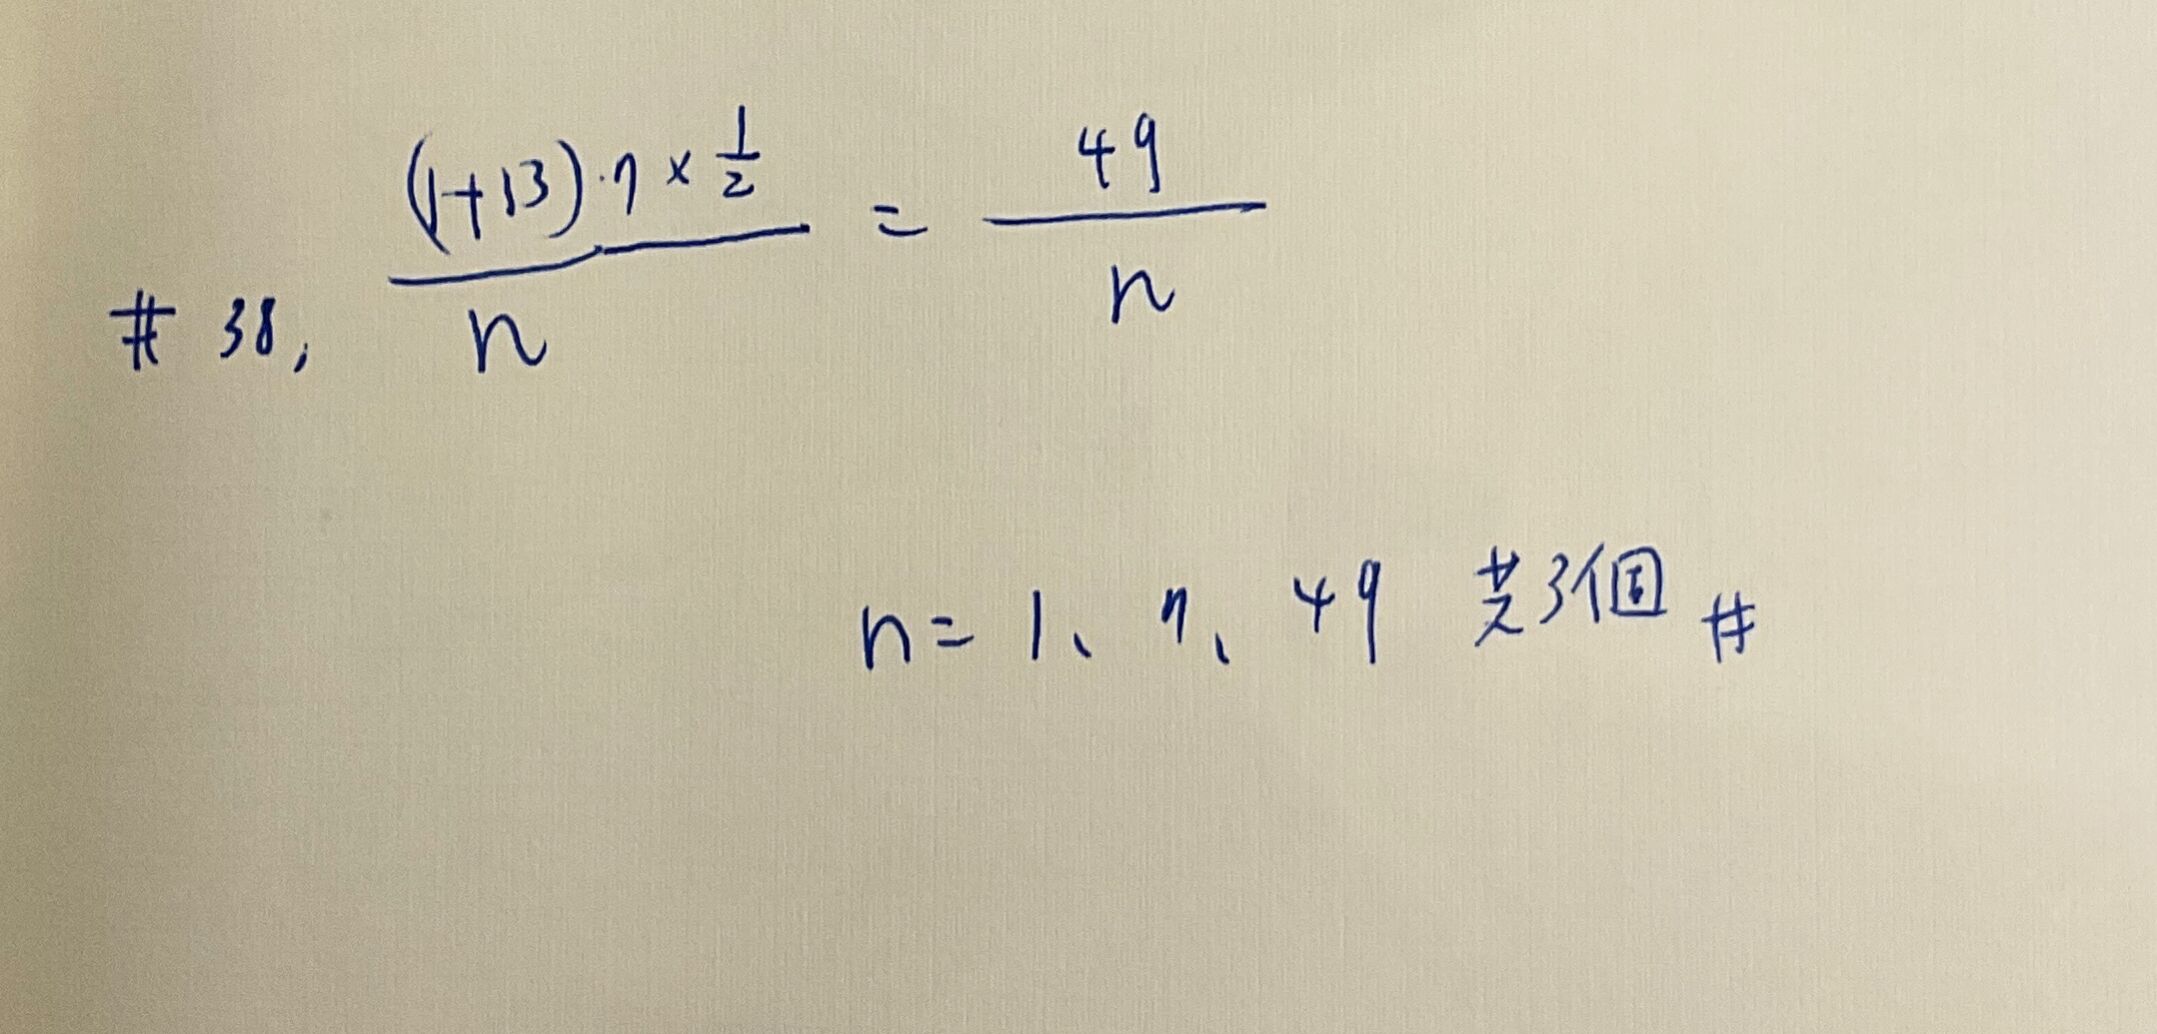 # 38, ((1+13)·7×1/2)/n = 49/n
n = 1、7、49 共3個 #